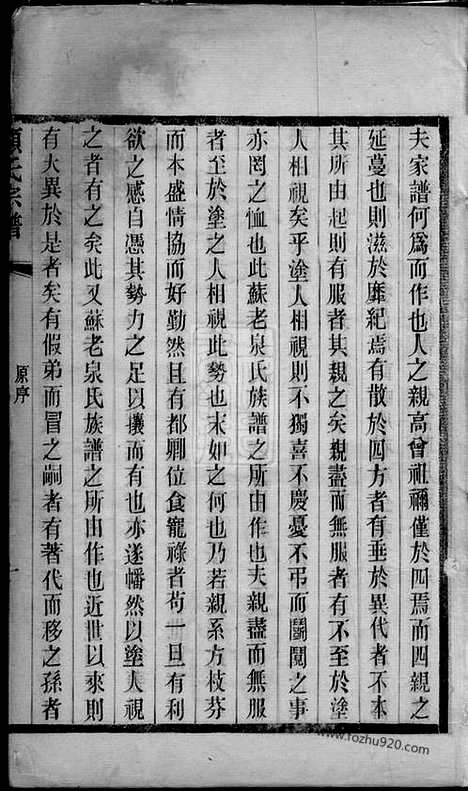 夫家譜何爲而作也人之親高曾祖禰僅於四焉而四親之
延蔓也則滋於靡紀焉有散於四方者有垂於異代者不本
其所由起則有服者其親之矣親盡而無服者有不至於塗
人相視矣乎塗人相視則不獨喜不慶憂不弔而鬭鬩之事
亦罔之恤也此蘇老泉氏族譜之所由作也夫親盡而無服
者至於塗之人相視此勢也末如之何也乃若親系方枝芬
而本盛情協而好勤然且有都卿位食寵祿者苟一旦有利
欲之感自憑其勢力之足以攘而有也亦遂幡然以塗人視
之者有之矣此又蘇老泉氏族譜之所由作也近世以來則
有大異於是者矣有假弟而冒之嗣者有著代而移之孫者
氏宗譜
原序
一
www.fozhu920.com